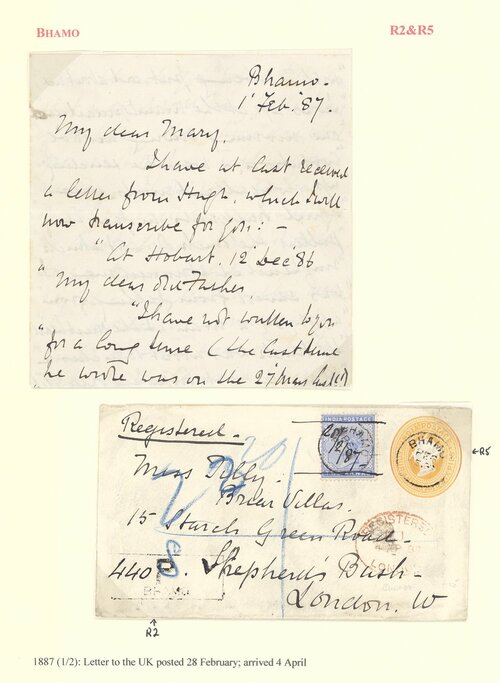 BHAMO
R2&R5
Bhamo.
1 Feb. '87.
My dear Mary,
I have at last received
a letter from Hugh, which I will
now transcribe for you: —
"At Hobart. 12 Dec '86
"My dear old Father
"I have not written to you
"for a long time (the last time
he wrote was on the 27
Registered
INDIA POSTAGE
BHAMO
Miss Tilly
Briar Villas.
←R5
15 Starch Green Road
REGISTERED
440
Shepherd's Bush
LONDON
BHAMO
London. W
↑
R2
1887 (1/2): Letter to the UK posted 28 February; arrived 4 April